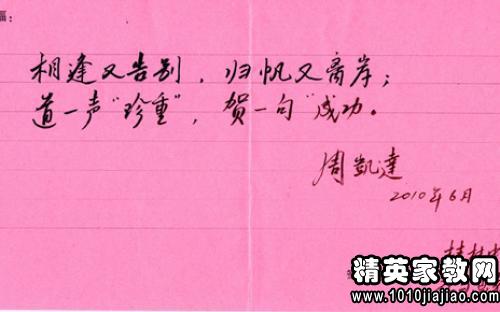 福：
相逢又告别，归帆又离岸；
道一声“珍重”，贺一句“成功。
周凯達
2010年6月
精英家教网
www.1010jiajiao.com